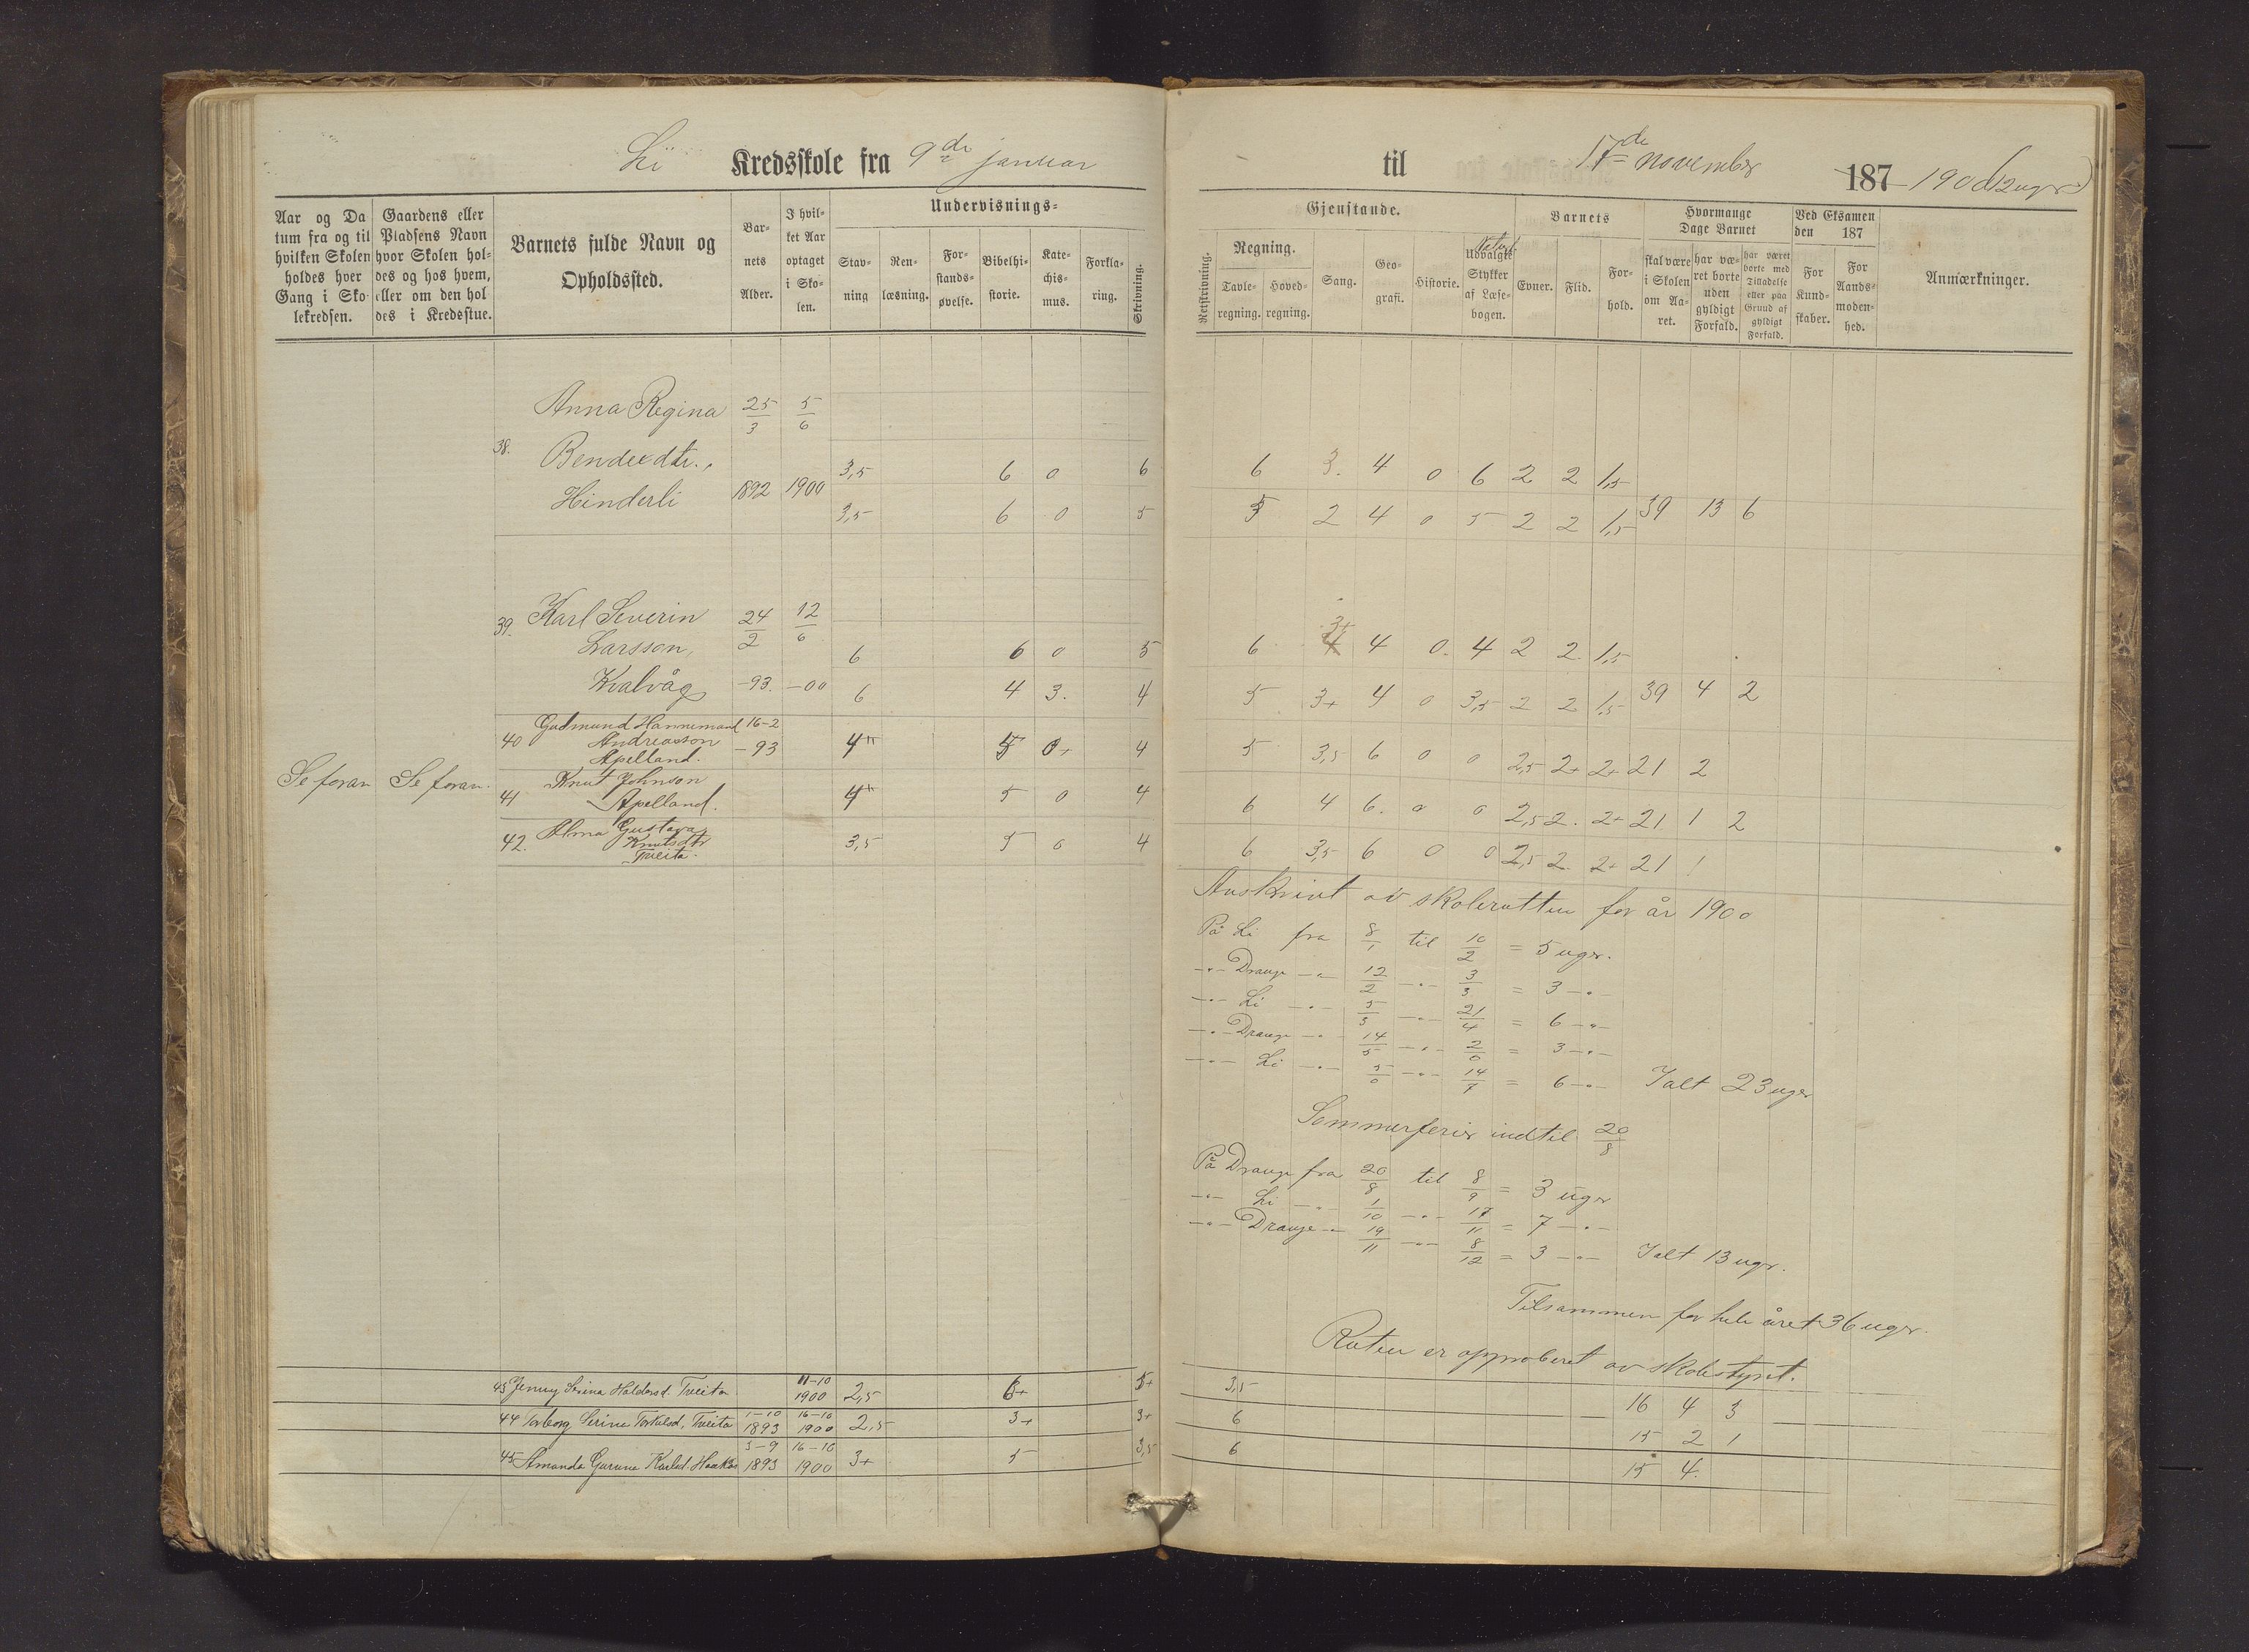 Li Kredsskole fra 9de januar til 17de november 187 1900 (12 uger)
Aar og Da
tum fra og til
hvilken Skolen
holdes hver
Gang i Sko
lekredsen.
Gaardens eller
Pladsens Navn
hvor Skolen hol-
des og hos hvem,
eller om den hol
des i Kredsstue.
Barnets fulde Navn og
Opholdssted.
Bar-
nets
Alder.
I hvil-
ket Aar
optaget
i Sko-
len.
Undervisnings-
Stav-
ning
Ren-
læsning.
For-
stands-
øvelse.
Bibelhi-
storie.
Kate-
chis-
mus.
Forkla-
ring.
Skrivning.
Gjenstande.
Retskrivning.
Regning.
Tavle-
regning.
Hoved-
regning.
Sang.
Geo-
grafi.
Historie.
Udvalgte
Stykker
af Læse-
bogen.
Barnets
Evner.
Flid.
For-
hold.
Hvormange
Dage Barnet
skal være
i Skolen
om Aa-
ret.
har væ-
ret borte
uden
gyldigt
Forfald.
har været
borte med
Tilladelse
eller paa
Grund af
gyldigt
Forfald.
Ved Eksamen
den 187
For
Kund-
skaber.
For
Aands-
moden-
hed.
Anmærkninger.
Anna Regina 25/3 5/6
38. Bendexdtr., 3,5 6 0 6 6 3. 4 0 6 2 2 1,5
Hinderli 1892 1900 3,5 6 0 5 5 2 4 0 5 2 2 1,5 39 13 6
39. Karl Severin 24/2 12/6
Larsson, 6 6 0 5 6 3+ 4 0. 4 2 2 1,5
Kvalvåg -93. -00 6 4 3. 4 5 3+ 4 0 3,5 2 2 1,5 39 4 2
Gudmund Hannemand 16-2
40 Andreasson -93 4" 5 0+ 4 5 3,5 6 0 0 2,5 2+ 2+ 21 2
Apelland.
Se foran Se foran.
Knut Johnson
41 Apelland. 4" 5 0 4 6 4 6. 0 0 2,5 2. 2+ 21 1 2
Alma Gustava
42. Knutsdtr 3,5 5 0 4 6 3,5 6 0 0 2,5 2. 2+ 21 1
Tveita.
Avskrivt av skoleruten for år 1900
På Li fra 8/1 til 10/2 = 5 uger.
-"- Drange -"- 12/2 -"- 3/3 = 3 -"-
-"- Li -"- 5/3 -"- 21/4 = 6 -"-
-"- Drange -"- 14/5 -"- 2/6 = 3 -"-
-"- Li -"- 5/6 -"- 14/7 = 6 -"- Ialt 23 uger
Sommerferier indtil 20/8
På Drange fra 20/8 til 8/9 = 3 uger
-"- Li -"- 1/10 -"- 17/11 = 7 -"-
-"- Drange -"- 19/11 -"- 8/12 = 3 -"- Ialt 13 uger.
Tilsammen for hele året 36 uger.
Ruten er approberet av skolestyret.
43 Jenny Serina Haldorsd. Tveita 11-10 1900 2,5 6+ 5+ 3,5 16 4 3
44 Torborg Serine Torkelsd, Tveita 1-10 1893 16-10 1900 2,5 3+ 3+ 6 15 2 1
45 Amanda Gurine Karlsd. 3-9 1893 16-10 1900 3+ 5 3,5 6 15 4.